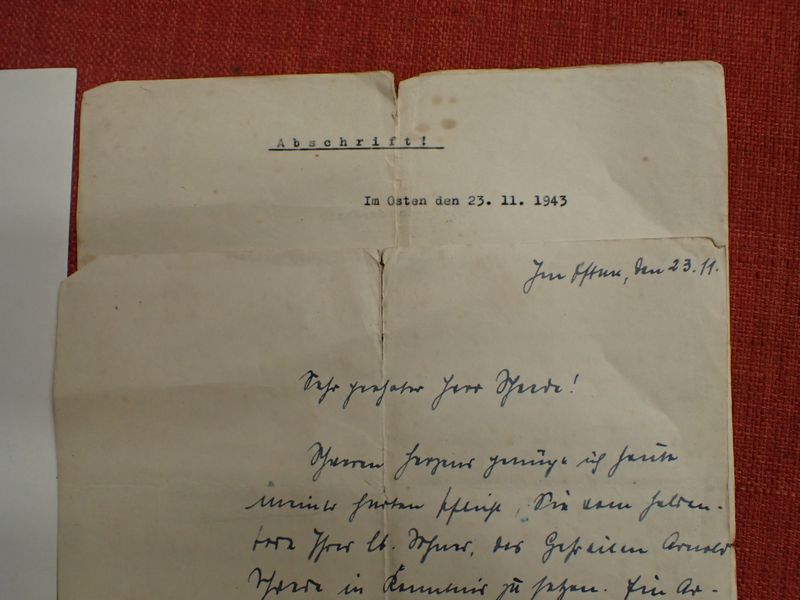 Abschrift!
Im Osten den 23. 11. 1943
Im Osten, den 23.11.
Sehr geehrter Herr Scheede!
Schweren Herzens genüge ich heute
meiner harten Pflicht, Sie vom Helden-
tode Ihres lb. Sohnes, des Gefreiten Arnold
in Kenntnis zu setzen. Ein Ar-